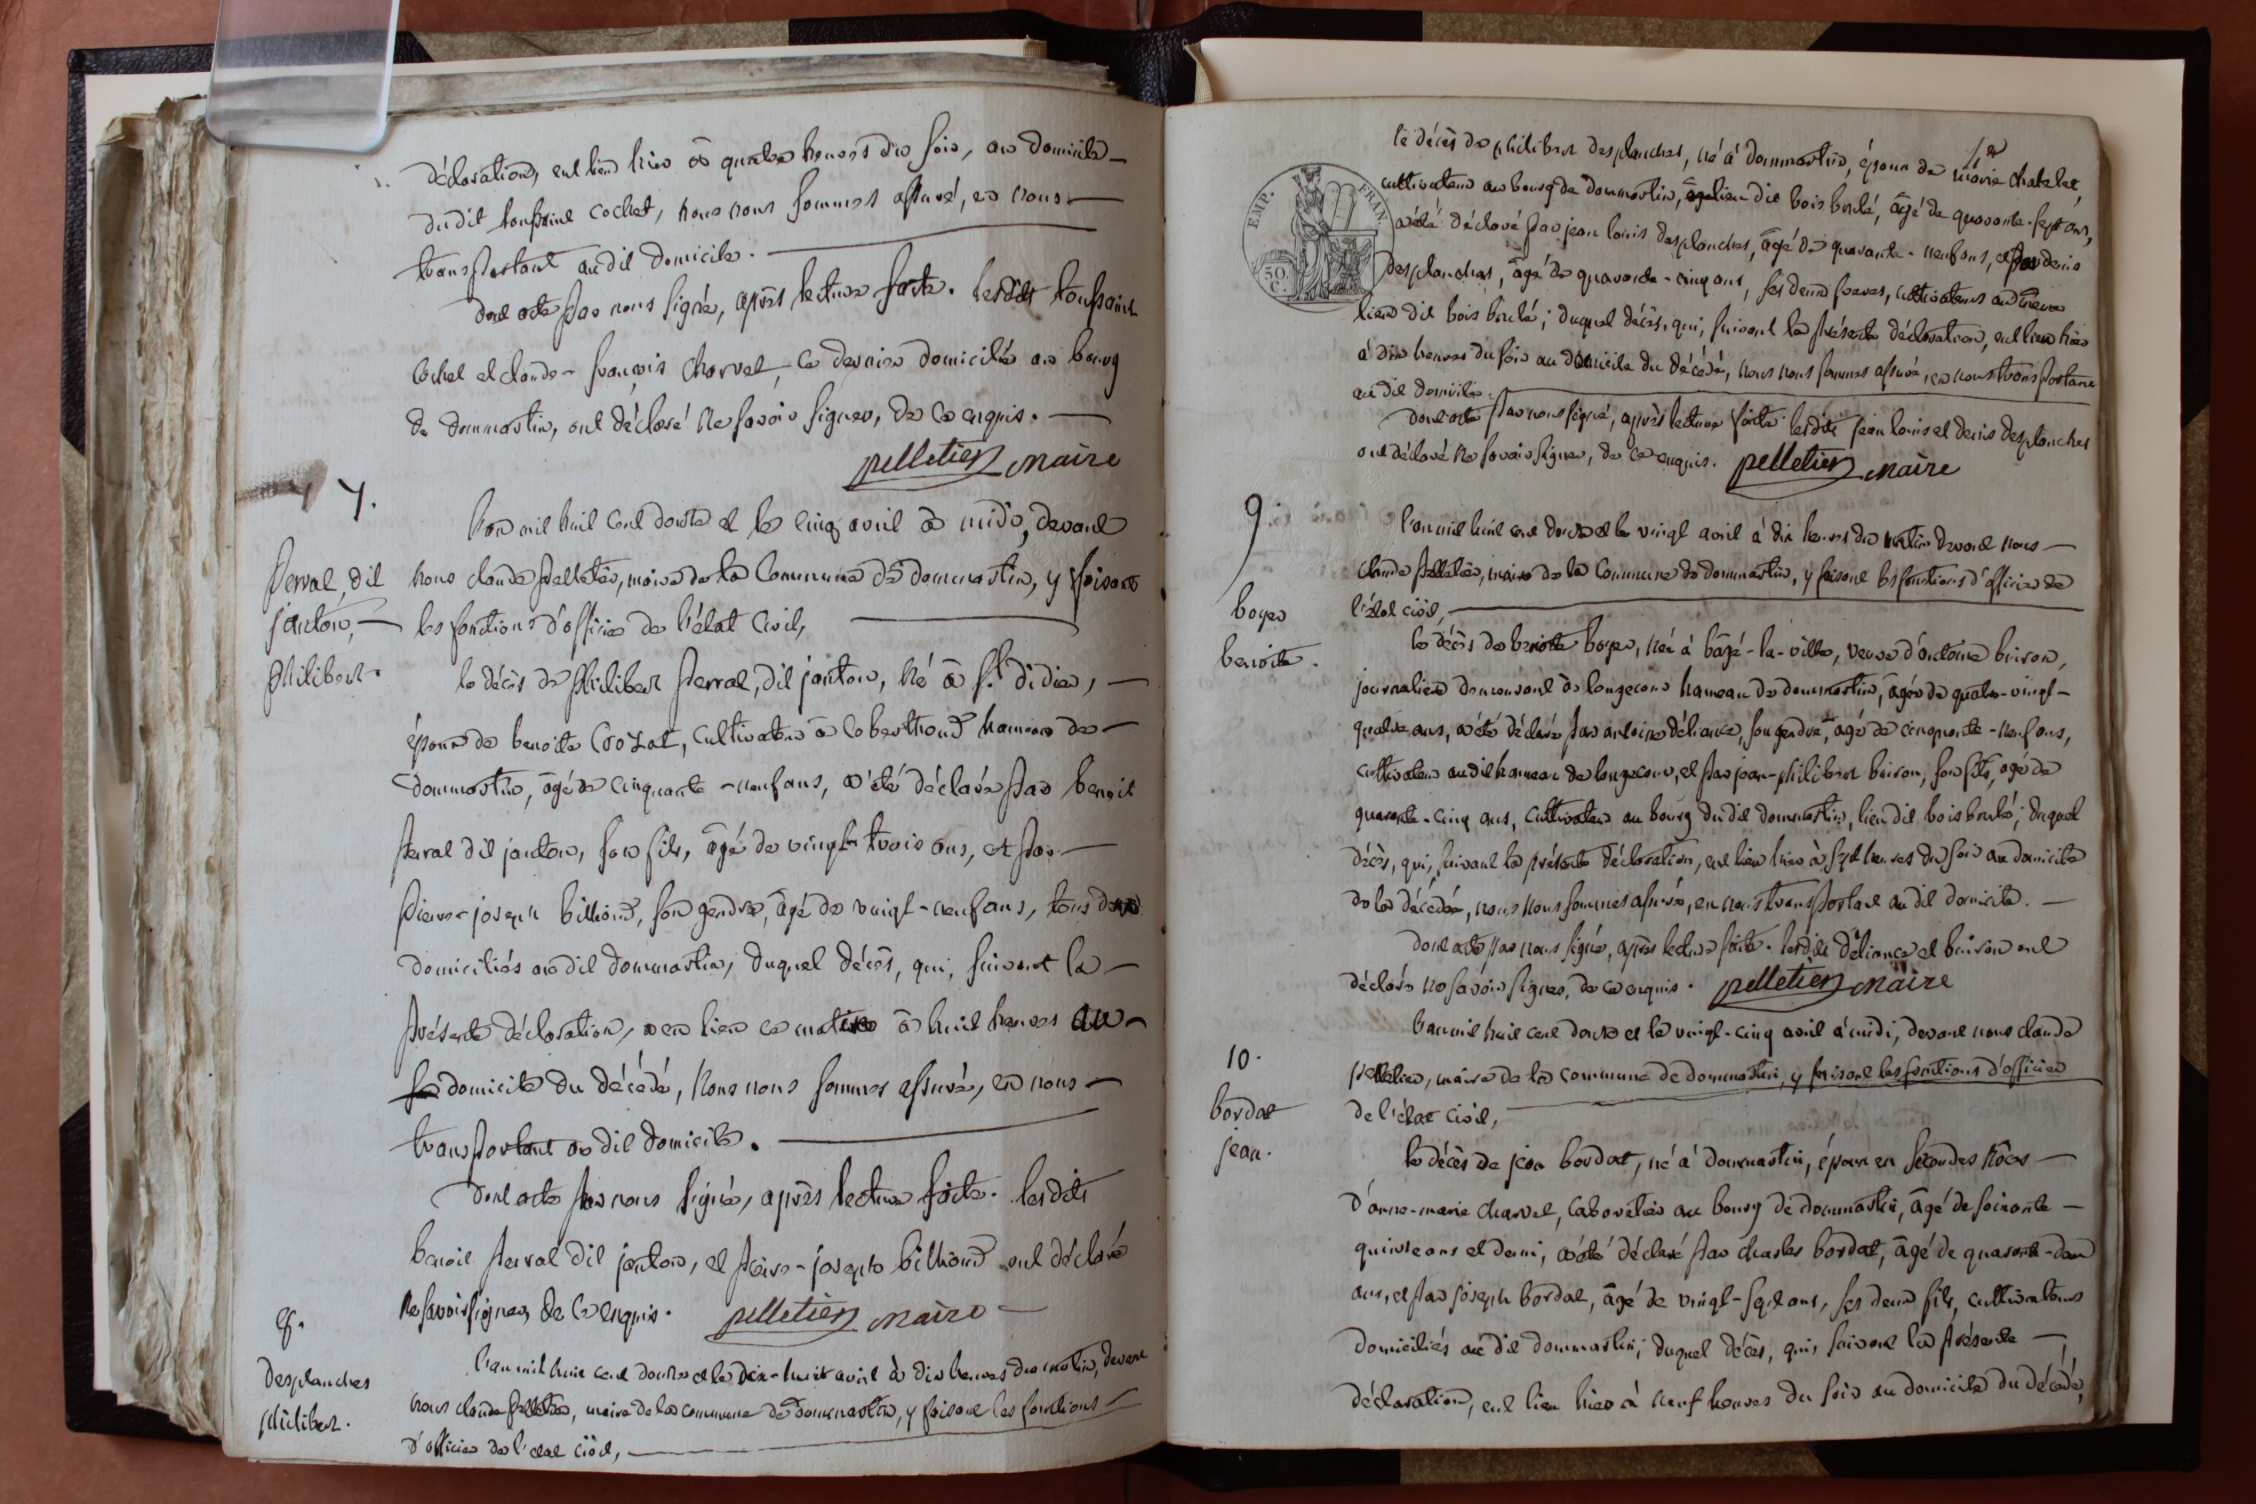 déclaration, eut lieu hier à quatre heures du soir, au domicile
du dit toussaint cochet, nous nous sommes assuré, en nous
transportant au dit domicile.
dont acte par nous signé, après lecture faite. lesdits toussaint
cochet et claude-françois charvet, ce dernier domicilié au bourg
de dommartin, ont déclaré ne savoir signer, de ce enquis.
pelletier maire
7.
perral, dit
janton,
philibert.
l'an mil huit cent douze et le cinq avril à midi, devant
nous claude pelletier, maire de la commune de dommartin, y faisant
les fonctions d'officier de l'état civil,
le décès de philibert perral, dit janton, né à st. didier,
époux de benoite crozat, cultivateur à coberthoud hameau de
dommartin, âgé de cinquante-neuf ans, a été déclaré par benoit
perral dit janton, son fils, âgé de vingt trois ans, et par
pierre-joseph billioud, son gendre, âgé de vingt-neuf ans, tous deux
domiciliés au dit dommartin, duquel décès, qui, suivant la
présente déclaration, a eu lieu ce matin à huit heures au
domicile du décédé, nous nous sommes assuré, en nous
transportant au dit domicile.
dont acte par nous signé, après lecture faite. lesdits
benoit perral dit janton, et pierre-joseph billioud ont déclaré
ne savoir signer, de ce enquis. pelletier maire
8.
desplanches
philibert.
l'an mil huit cent douze et le dix-huit avril à dix heures du matin, devant
nous claude pelletier, maire de la commune de dommartin, y faisant les fonctions
d'officier de l'état civil,
EMP. FRAN.
50.
C.
le décès de philibert desplanches, né à dommartin, époux de marie chatelet,
cultivateur au bourg de dommartin, lieu dit bois brulé, âgé de quarante-sept ans,
a été déclaré par jean louis desplanches, âgé de quarante-neuf ans, et par denis
desplanches, âgé de quarante-cinq ans, ses deux frères, cultivateurs au
lieu dit bois brulé; duquel décès, qui, suivant la présente déclaration, eut lieu hier
à dix heures du soir au domicile du décédé, nous nous sommes assuré, en nous transportant
au dit domicile.
dont acte par nous signé, après lecture faite. lesdits jean louis et denis desplanches
ont déclaré ne savoir signer, de ce enquis. pelletier maire
9.
boyer
benoite.
l'an mil huit cent douze et le vingt avril à dix heures du matin devant nous
claude pelletier, maire de la commune de dommartin, y faisant les fonctions d'officier de
l'état civil,
le décès de benoite boyer, née à bâgé-la-ville, veuve d'antoine buison,
journalière demeurant à longecour hameau de dommartin, âgée de quatre-vingt-
quatre ans, a été déclaré par antoine déliance, son gendre, âgé de cinquante-neuf ans,
cultivateur au dit hameau de longecour, et par jean-philibert buison, son fils, âgé de
quarante-cinq ans, cultivateur au bourg du dit dommartin, lieu dit bois brulé; duquel
décès, qui, suivant la présente déclaration, eut lieu hier à sept heures du soir au domicile
de la décédée, nous nous sommes assuré, en nous transportant au dit domicile.
dont acte par nous signé, après lecture faite. lesdits déliance et buison ont
déclaré ne savoir signer, de ce enquis. pelletier maire
10.
bordat
jean.
l'an mil huit cent douze et le vingt-cinq avril à midi, devant nous claude
pelletier, maire de la commune de dommartin, y faisant les fonctions d'officier
de l'état civil,
le décès de jean bordat, né à dommartin, époux en secondes nôces
d'anne-marie charvet, cabaretier au bourg de dommartin, âgé de soixante
quinze ans et demi, a été déclaré par charles bordat, âgé de quarante-deux
ans, et par joseph bordat, âgé de vingt-sept ans, ses deux fils, cultivateurs
domiciliés au dit dommartin; duquel décès, qui, suivant la présente
déclaration, eut lieu hier à neuf heures du soir au domicile du décédé,